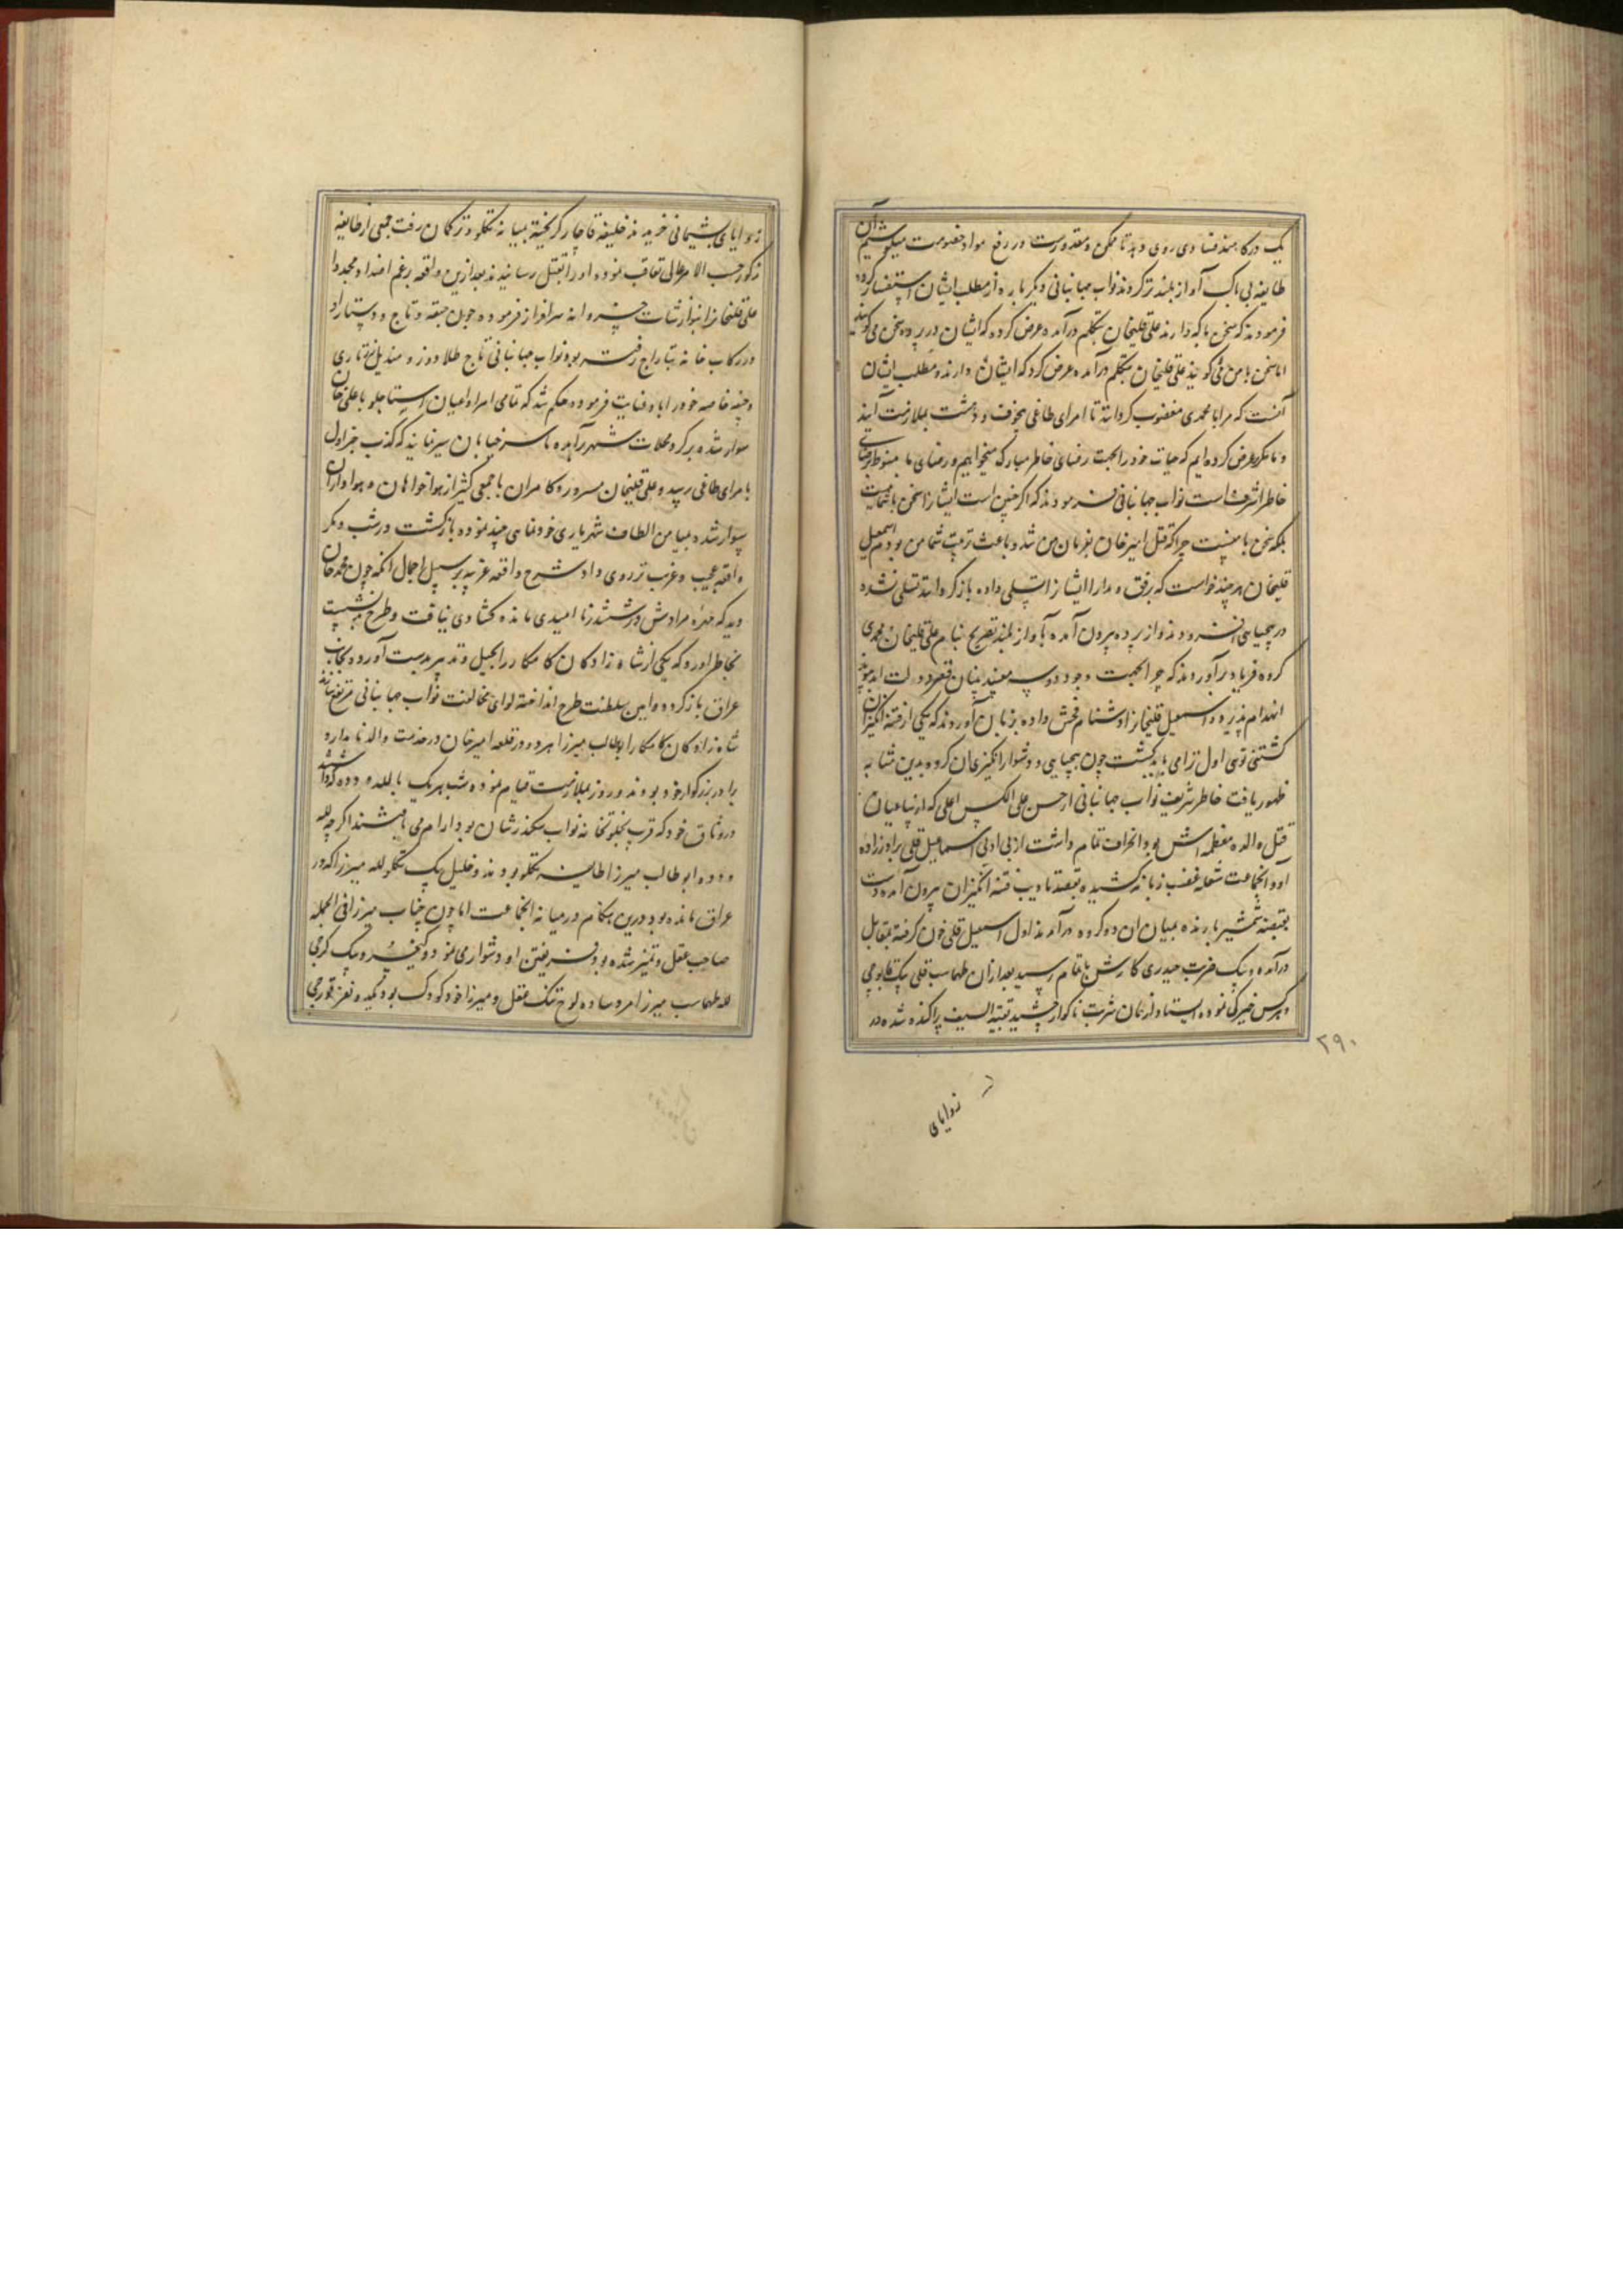 یک درگاهند فسادی روی دهد تا ممکن و مقدورست در رفع مواد خصومت میکوشیم آن
طایفه بی باک آواز بلندتر کردند نواب جهانبانی دیگر باره از مطلب ایشان استفسار کرده
فرمودند که سخن با که دارند علی قلیخان بتکلم درآمده عرض کرد که ایشان در پرده سخن می گویند
اما سخن با من می گویند علی قلیخان بتکلم درآمده عرض کرد که ایشان دارند و مطلب ایشان
آنست که مرا با محمدی مغضوب گردانند تا امرای طاغی بیخوف و دهشت بملازمت آیند
و ما مکرر عرض کرده ایم که حیات خود را بجهت رضای خاطر مبارک میخواهیم و رضای ما منوط برضای
خاطر اشرف است نواب جهانبانی فرمودند که اگر چنین است ایشانرا سخن با شما نیست
بلکه سخن با منست چرا که قتل امیرخان بفرمان من شد و باعث تربیت شما من بودم اسمعیل
قلیخان هرچند خواست که برفق و مدارا ایشانرا تسلی داده بازگرداند تسلی نشده
در بیحیایی افزودند و از پرده بیرون آمده بآواز بلند تصریح بنام علی قلیخان و محمدی
کرده فریاد برآوردند که چرا بجهت وجود دو سه مفسد بنیان قصر دولت ابد پیوند
انهدام پذیرد و اسمعیل قلیخانرا دشنام فحش داده بزبان آوردند که یکی از فتنه انگیزان
کشتنی توی اول ترا می باید کشت چون بیحیایی و دشوار انگیزی آن گروه بدین مثابه
ظهور یافت خاطر شریف نواب جهانبانی از حسن علی الکس اعلی که از ساعیان
قتل والده معظمه اش بود انحراف تمام داشت از بی ادبی اسماعیل قلی برادرزاده
او و آنجماعت شعله غضب زبانه کشیده بقصد تادیب فتنه انگیزان بیرون آمده دست
بقبضه شمشیر برنده بمیان آن دو گروه درآمدند اول اسمعیل قلی خون گرفته بمقابل
درآمده و بیک ضرب حیدری کارش باتمام رسید بعد از آن طهماسب قلی بیک قابوچی
و هرکس خیرگی نموده ایستاد از همان شربت ناگوار چشید بقیة السیف پراکنده شده در
۲۹۰
زوایای
زوایای پشیمانی خزیدند خلیفه قاجار گریخته بمیانه تکلو و ترکمان رفت جمعی از طایفه
مذکور حسب الامر عالی تعاقب نموده او را بقتل رسانیدند بعد ازین واقعه برغم اضداد مجددا
علی قلیخانرا بنوازشات خسروانه سرافراز فرموده چون جقه و تاج و دستار او
در رکاب خانه بتاراج رفته بود نواب جهانبانی تاج طلادوز و مندیل زرتاری
و جقه خاصه خود را باو عنایت فرموده حکم شد که تمامی امرا و اعیان استاجلو با علی خان
سوار شده بر گرد محلات شهر برآمده تا سر خیابان سیر نمایند که کذب خبر اول
بامرای طاغی رسید و علی قلیخان مسرور و کامران با جمعی کثیر از هواخواهان و هواداران
سوار شده بمیامن الطاف شهریاری خودنمایی چند نموده بازگشت و در شب دیگر
واقعه عجیب و غریب تر روی داد شرح واقعه غریبه بر سبیل اجمال آنکه چون محمدخان
دید که مهره مرادش در ششدر ناامیدی مانده گشادی نیافت و طرح نشست
بخاطر آورد که یکی از شاه زادگان کامکار را بحیل و تدبیر بدست آورده بجانب
عراق باز گردد و آیین سلطنت طرح انداخته لوای مخالفت نواب جهانبانی مرتفع سازند
شاه زادگان کامکار ابوطالب میرزا هر دو در قلعه امیرخان در خدمت والد نامدار و
برادر بزرگوار خود بودند و روز بملازمت قیام نموده شب هریک با لله و دده گرد آمده
در وثاق خود که قرب بخلوتخانه نواب سکندرشان بود آرام می یافتند اگرچه لله
و دده ابوطالب میرزا طایفه تکلو بودند و خلیل بیک تکلو لله میرزا که در
عراق مانده بود درین هنگام در میانه آنجماعت اما چون جناب میرزا فی الجمله
صاحب عقل و تمیز شده بود فریفتن او دشوار می نمود و کیخسرو بیک گرجی
لله طهماسب میرزا مرد ساده لوح تنک عقل و میرزا خود کودک بود بکید و تعزیر قورچی